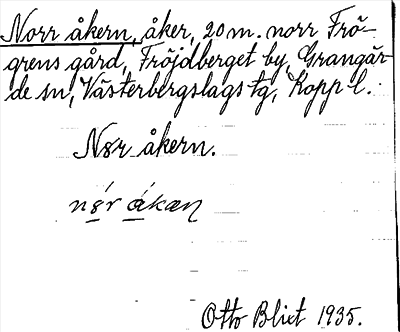 Norr åkern, åker, 20 m. norr Frö-
grens gård, Fröjdberget by, Grangär-
de sn, Västerbergslags tg, Kopp l.
N8r åkern.
n8́r åkæn
Otto Blixt 1935.